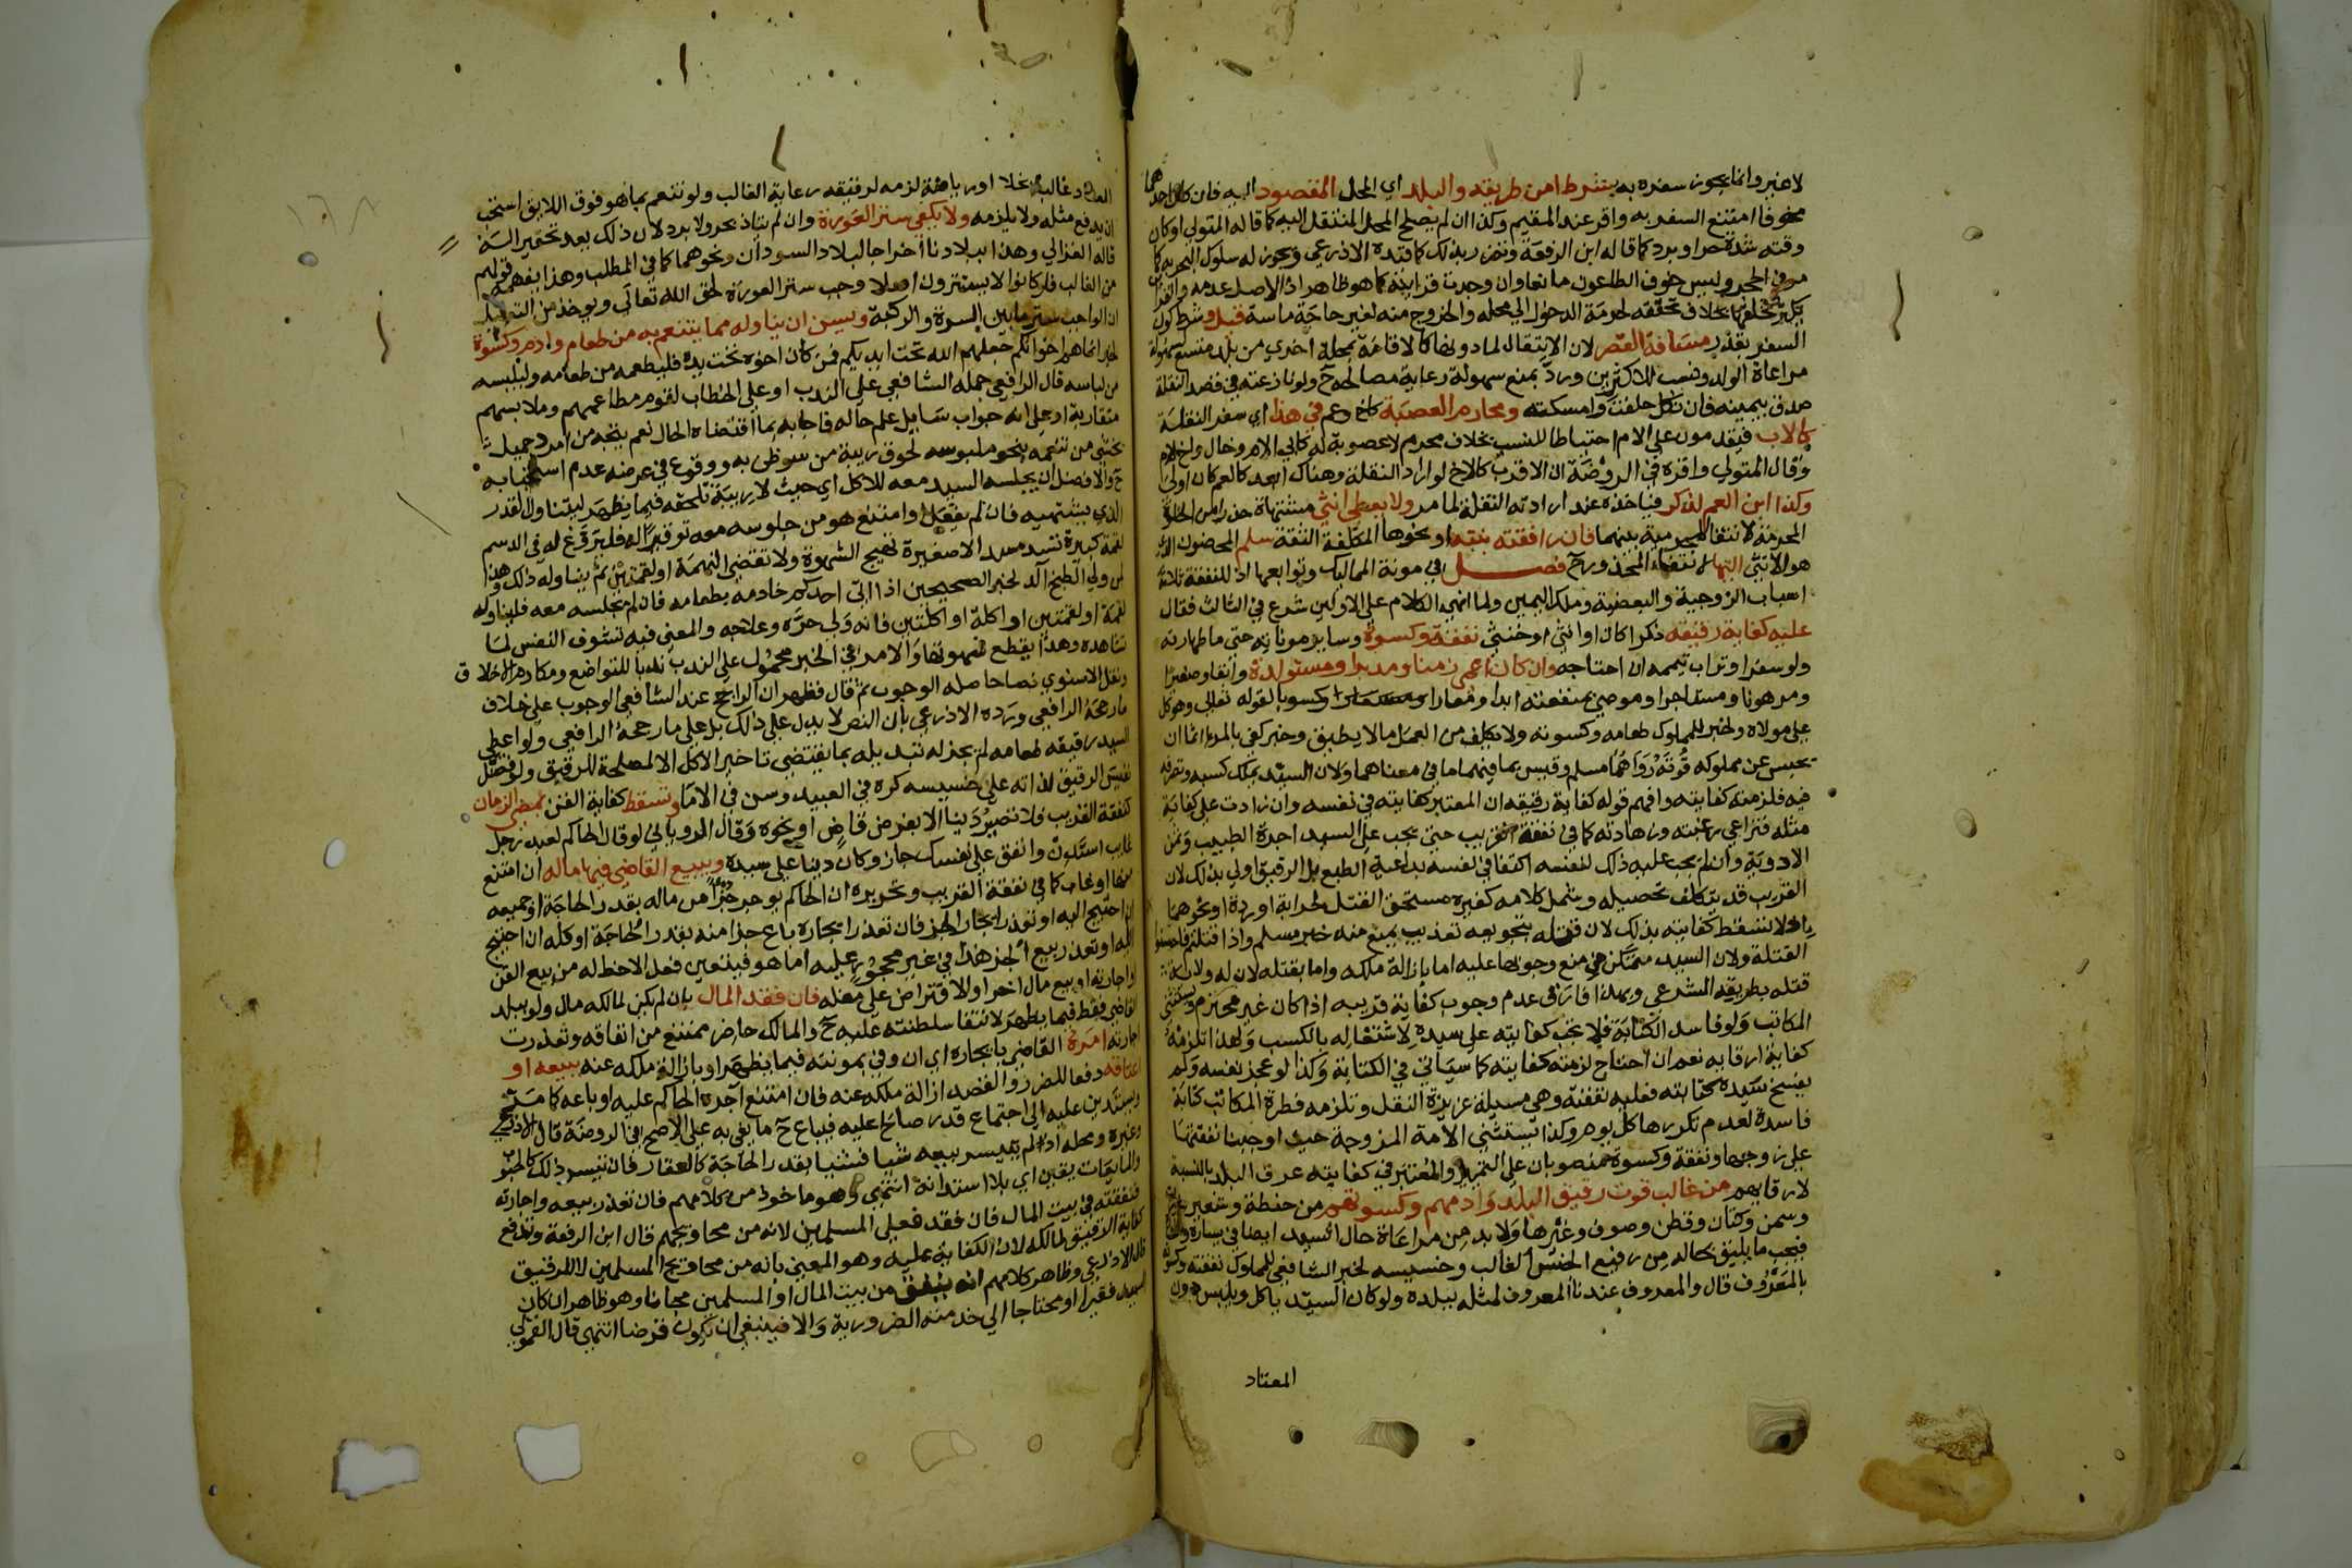 لاغير وانما يجوز سفره به بشرط امن طريقه والبلد اي المحل المقصود اليه فان كان احدهما
مخوفا امتنع السفر به واقر عند المقيم وكذا ان لم يصلح المحل المنتقل اليه كما قاله المتولي او كان
وقته شدة حر او برد كما قاله ابن الرفعة وتضرر بذلك كما قيده الاذرعي ويجوز له سلوك البحر به كما
مر في الحجر وليس خوف الطاعون مانعا وان وجدت قراينه كما هو ظاهر اذ الاصل عدمه
يكثر تخلفها بخلاف تحققه لحرمة الدخول الي محله والخروج منه لغير حاجة ماسة قيل وشرط كون
السفر بقدر مسافة القصر لان الانتقال لما دونها كالاقامة بمحلة اخري من بلد متسع لسهولة
مراعاة الولد ونسب للاكثرين ورد بمنع سهولة رعاية مصالحه ح ولو نازعته في قصد النقلة
صدق بيمينه فان نكل حلفت وامسكته ومحارم العصبة كاخ وعم في هذا اي سفر النقلة
كالاب فيقدمون علي الام احتياطا للنسب بخلاف محرم لا عصوبة له كابي الام وخال واخ لام
وقال المتولي واقره في الروضة ان الاقرب كالاخ لو اراد النقلة وهناك ابعد كالعم كان اولي
وكذا ابن العم لذكر فياخذه عند ارادته النقلة لما مر ولا يعطي انثي مشتهاة حذرا من الخلوة
المحرمة لانتفا المحرمية بينهما فان رافقته بنته او نحوها المكلفة الثقة سلم المحضون الذي
هو الانثي اليها لانتفاء المحذور ح فصل في مونة المماليك وتوابعها اذ للنفقة ثلاثة
اسباب الزوجية والبعضية وملك اليمين ولما انهي الكلام علي الاولين شرع في الثالث فقال
عليه كفاية رقيقه ذكرا كان او انثي او خنثي نفقة وكسوة وساير مونانه حتي ما طهارته
ولو سفرا وتراب تيممه ان احتاجه وان كان اعمي زمنا ومدبرا ومستولدة وابقا وصغيرا
ومرهونا ومستاجرا وموصي بمنفعته ابدا ومعارا وكسوبا لقوله تعالي وهو كل
علي مولاه ولخبر للمملوك طعامه وكسوته ولا يكلف من العمل ما لا يطيق وخبر كفي بالمرء اثما ان
يحبس عن مملوكه قوته رواهما مسلم وقيس بما فيهما ما في معناهما ولان السيد يملك كسبه وتصرفه
فيه فلزمته كفايته وافهم قوله كفاية رقيقه ان المعتبر كفايته في نفسه وان زادت علي كفاية
مثله فتراعي رغبته وزهادته كما في نفقة القريب حتي يجب علي السيد اجرة الطبيب وثمن
الادوية وان لم يجب عليه ذلك لنفسه اكتفا في نفسه بداعية الطبع بل الرقيق اولي بذلك لان
القريب قد يتكلف تحصيله ويشمل كلامه كغيره مستحق القتل لحرابة او ردة او نحوهما
اذ لا تسقط كفايته بذلك لان قتله بتجويعه تعذيب يمنع منه خبر مسلم واذا قتلتم فاحسنوا
القتلة ولان السيد متمكن من منع وجوبها عليه اما بازالة ملكه واما بقتله لان له ولاية
قتله بطريقه الشرعي وبهذا فارق عدم وجوب كفاية قريبه اذا كان غير محترم ويستثني
المكاتب ولو فاسد الكتابة فلا تجب كفايته علي سيده لاشتغاله بالكسب ولهذا تلزمه
كفاية ارقايه نعم ان احتاج لزمته كفايته كما سياتي في الكتابة وكذا لو عجز نفسه ولم
يفسخ سيده كتابته فعليه نفقته وهي مسيلة عزيزة النقل وتلزمه فطرة المكاتب كتابة
فاسدة لعدم تكررها كل يوم وكذا تستثني الامة المزوجة حيث اوجبنا نفقتها
علي زوجها ونفقة وكسوة منصوبان علي التمييز والمعتبر في كفايته عرف البلد بالنسبة
لارقايهم من غالب قوت رقيق البلد وادمهم وكسوتهم من حنطة وشعير
وسمن وكتان وقطن وصوف وغيرها ولا بد من مراعاة حال السيد ايضا في يساره
فيجب ما يليق بحاله من رفيع الجنس الغالب وخسيسه لخبر الشافعي للمملوك نفقته وكسوته
بالمعروف قال والمعروف عندنا المعروف لمثله ببلده ولو كان السيد ياكل ويلبس دون
المعتاد
المعتاد غالبا بخلا او رياضة لزمه لرقيقه رعاية الغالب ولو تنعم بما هو فوق اللايق استحب
ان يدفع مثله ولا يلزمه ولا يكفي ستر العورة وان لم يتاذ بحر ولا برد لان ذلك يعد تحقيرا
قاله الغزالي وهذا ببلادنا اخراجا لبلاد السودان ونحوهما كما في المطلب وهذا يفهمه قولهم
من الغالب فلو كانوا لا يستترون اصلا وجب ستر العورة لحق الله تعالي ويوخذ من التعليل
ان الواجب ستر ما بين السرة والركبة ويسن ان يناوله مما يتنعم به من طعام وادم وكسوة
لخبر انما هم اخوانكم جعلهم الله تحت ايديكم فمن كان اخوه تحت يده فليطعمه من طعامه وليلبسه
من لباسه قال الرافعي حمله الشافعي علي الندب او علي الخطاب لقوم مطاعمهم وملابسهم
متقاربة او علي انه جواب سايل علم حاله فاجابه بما اقتضاه الحال نعم يتجه من امرد جميل
يخشي من تنعمه بنحو ملبوسه لحوق ريبة من سوظن به ووقوع في عرضه عدم استحبابه
ح والافضل ان يجلسه السيد معه للاكل اي حيث لا ريبة تلحقه فيما يظهر ليتناول القدر
الذي يشتهيه فان لم يفعل او امتنع هو من جلوسه معه توقيرا له فليروغ له في الدسم
لقمة كبيرة تسد مسدا لا صغيرة تهيج الشهوة ولا تقضي النهمة او لقمتين ثم يناوله ذلك وهذا
لمن ولي الطبخ اكد لخبر الصحيحين اذا اتي احدكم خادمه بطعامه فان لم يجلسه معه فليناوله
لقمة او لقمتين او اكلة او اكلتين فانه ولي حره وعلاجه والمعني فيه تشوف النفس لما
تشاهده وهذا يقطع شهوتها والامر في الخبر محمول علي الندب ندبا للتواضع ومكارم الاخلاق
ونقل الاسنوي نصا حاصله الوجوب ثم قال فظهر ان الراجح عند الشافعي الوجوب علي خلاف
ما رجحه الرافعي ورده الاذرعي بان النص لا يدل علي ذلك بل علي ما رجحه الرافعي ولو اعطي
السيد رقيقه طعامه لم يجز له تبديله بما يقتضي تاخير الاكل الا لمصلحة للرقيق ولو فضل
نفيس الرقيق لذاته علي خسيسه كره في العبيد وسن في الاما وتسقط كفاية القن بمضي الزمان
كنفقة القريب فلا تصير دينا الا بفرض قاض او نحوه وقال الروياني لو قال الحاكم لعبد رجل
غايب استدن وانفق علي نفسك جاز وكان دينا علي سيده ويبيع القاضي فيها ماله ان امتنع
منها او غاب كما في نفقة القريب وتحريره ان الحاكم يوجر جزءا من ماله بقدر الحاجة او جميعه
ان احتيج اليه او تعذر ايجار الجزء فان تعذر ايجاره باع جزا منه بقدر الحاجة او كله ان احتيج
اليه او تعذر بيع الجزء هذا في غير محجور عليه اما هو فيتعين فعل الاحظ له من بيع القن
او اجارته او بيع مال اخر او الاقتراض علي مغله فان فقد المال بان لم يكن لمالكه مال ولو ببلد
القاضي فقط فيما يظهر لانتفا سلطنته عليه ح والمالك حاضر ممتنع من انفاقه وتعذرت
اجارته امره القاضي بايجاره اي ان وفي بمونته فيما يظهر او بازالة ملكه عنه ببيعه او
اعتاقه دفعا للضرر والقصد ازالة ملكه عنه فان امتنع اجره الحاكم عليه او باعه كما مر
ويستدين عليه الي اجتماع قدر صالح عليه فيباع ح ما يفي به علي الاصح في الروضة قال الاذرعي
وغيره ومحله اذا لم يتيسر بيعه شيا فشيا بقدر الحاجة كالعقار فان تيسر ذلك كالحبوب
والمايعات يقين اي بلا استدانة انتهي وهو ماخوذ من كلامهم فان تعذر بيعه واجارته
فنفقته في بيت المال فان فقد فعلي المسلمين لانه من محاويجهم قال ابن الرفعة وتدفع
كفاية الرقيق لمالكه لان الكفاية عليه وهو المعني بانه من محاويج المسلمين لا للرقيق
قال الاذرعي وظاهر كلامهم انه ينفق من بيت المال او المسلمين مجانا وهو ظاهر ان كان
السيد فقيرا او محتاجا الي خدمته الضرورية والا فينبغي ان يكون قرضا انتهي قال القمولي